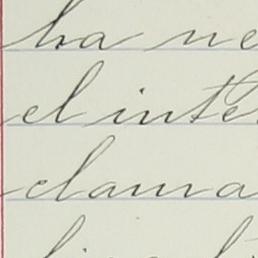 ha ne
el inte
clama